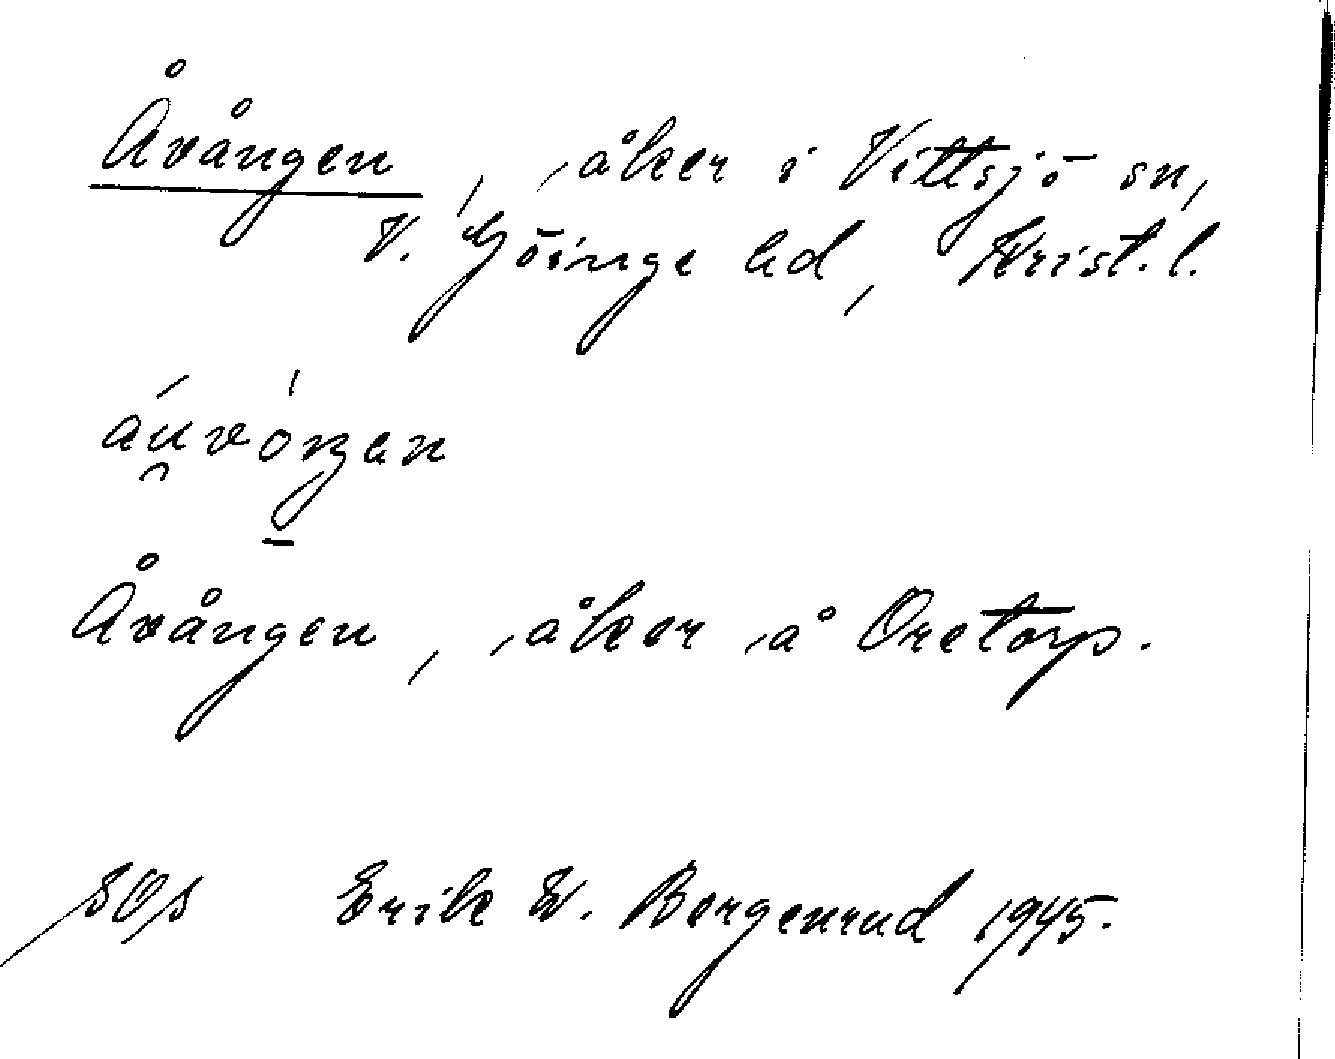 Åvången, åker i Vittsjö sn,
V. Göinge hd, Krist. l.
Åvången, åker å Oretorp.
SOS Erik W. Bergenrud 1945.